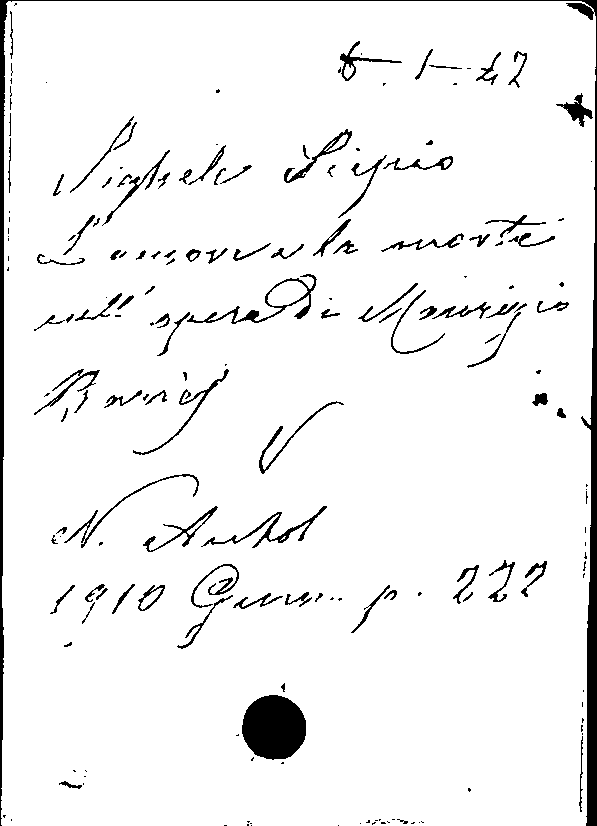 6-1-47
Sighele Scipio
L'amore e la morte
nell'opera di Maurizio
Barrès
N. Antol
1910 Genn. p. 222